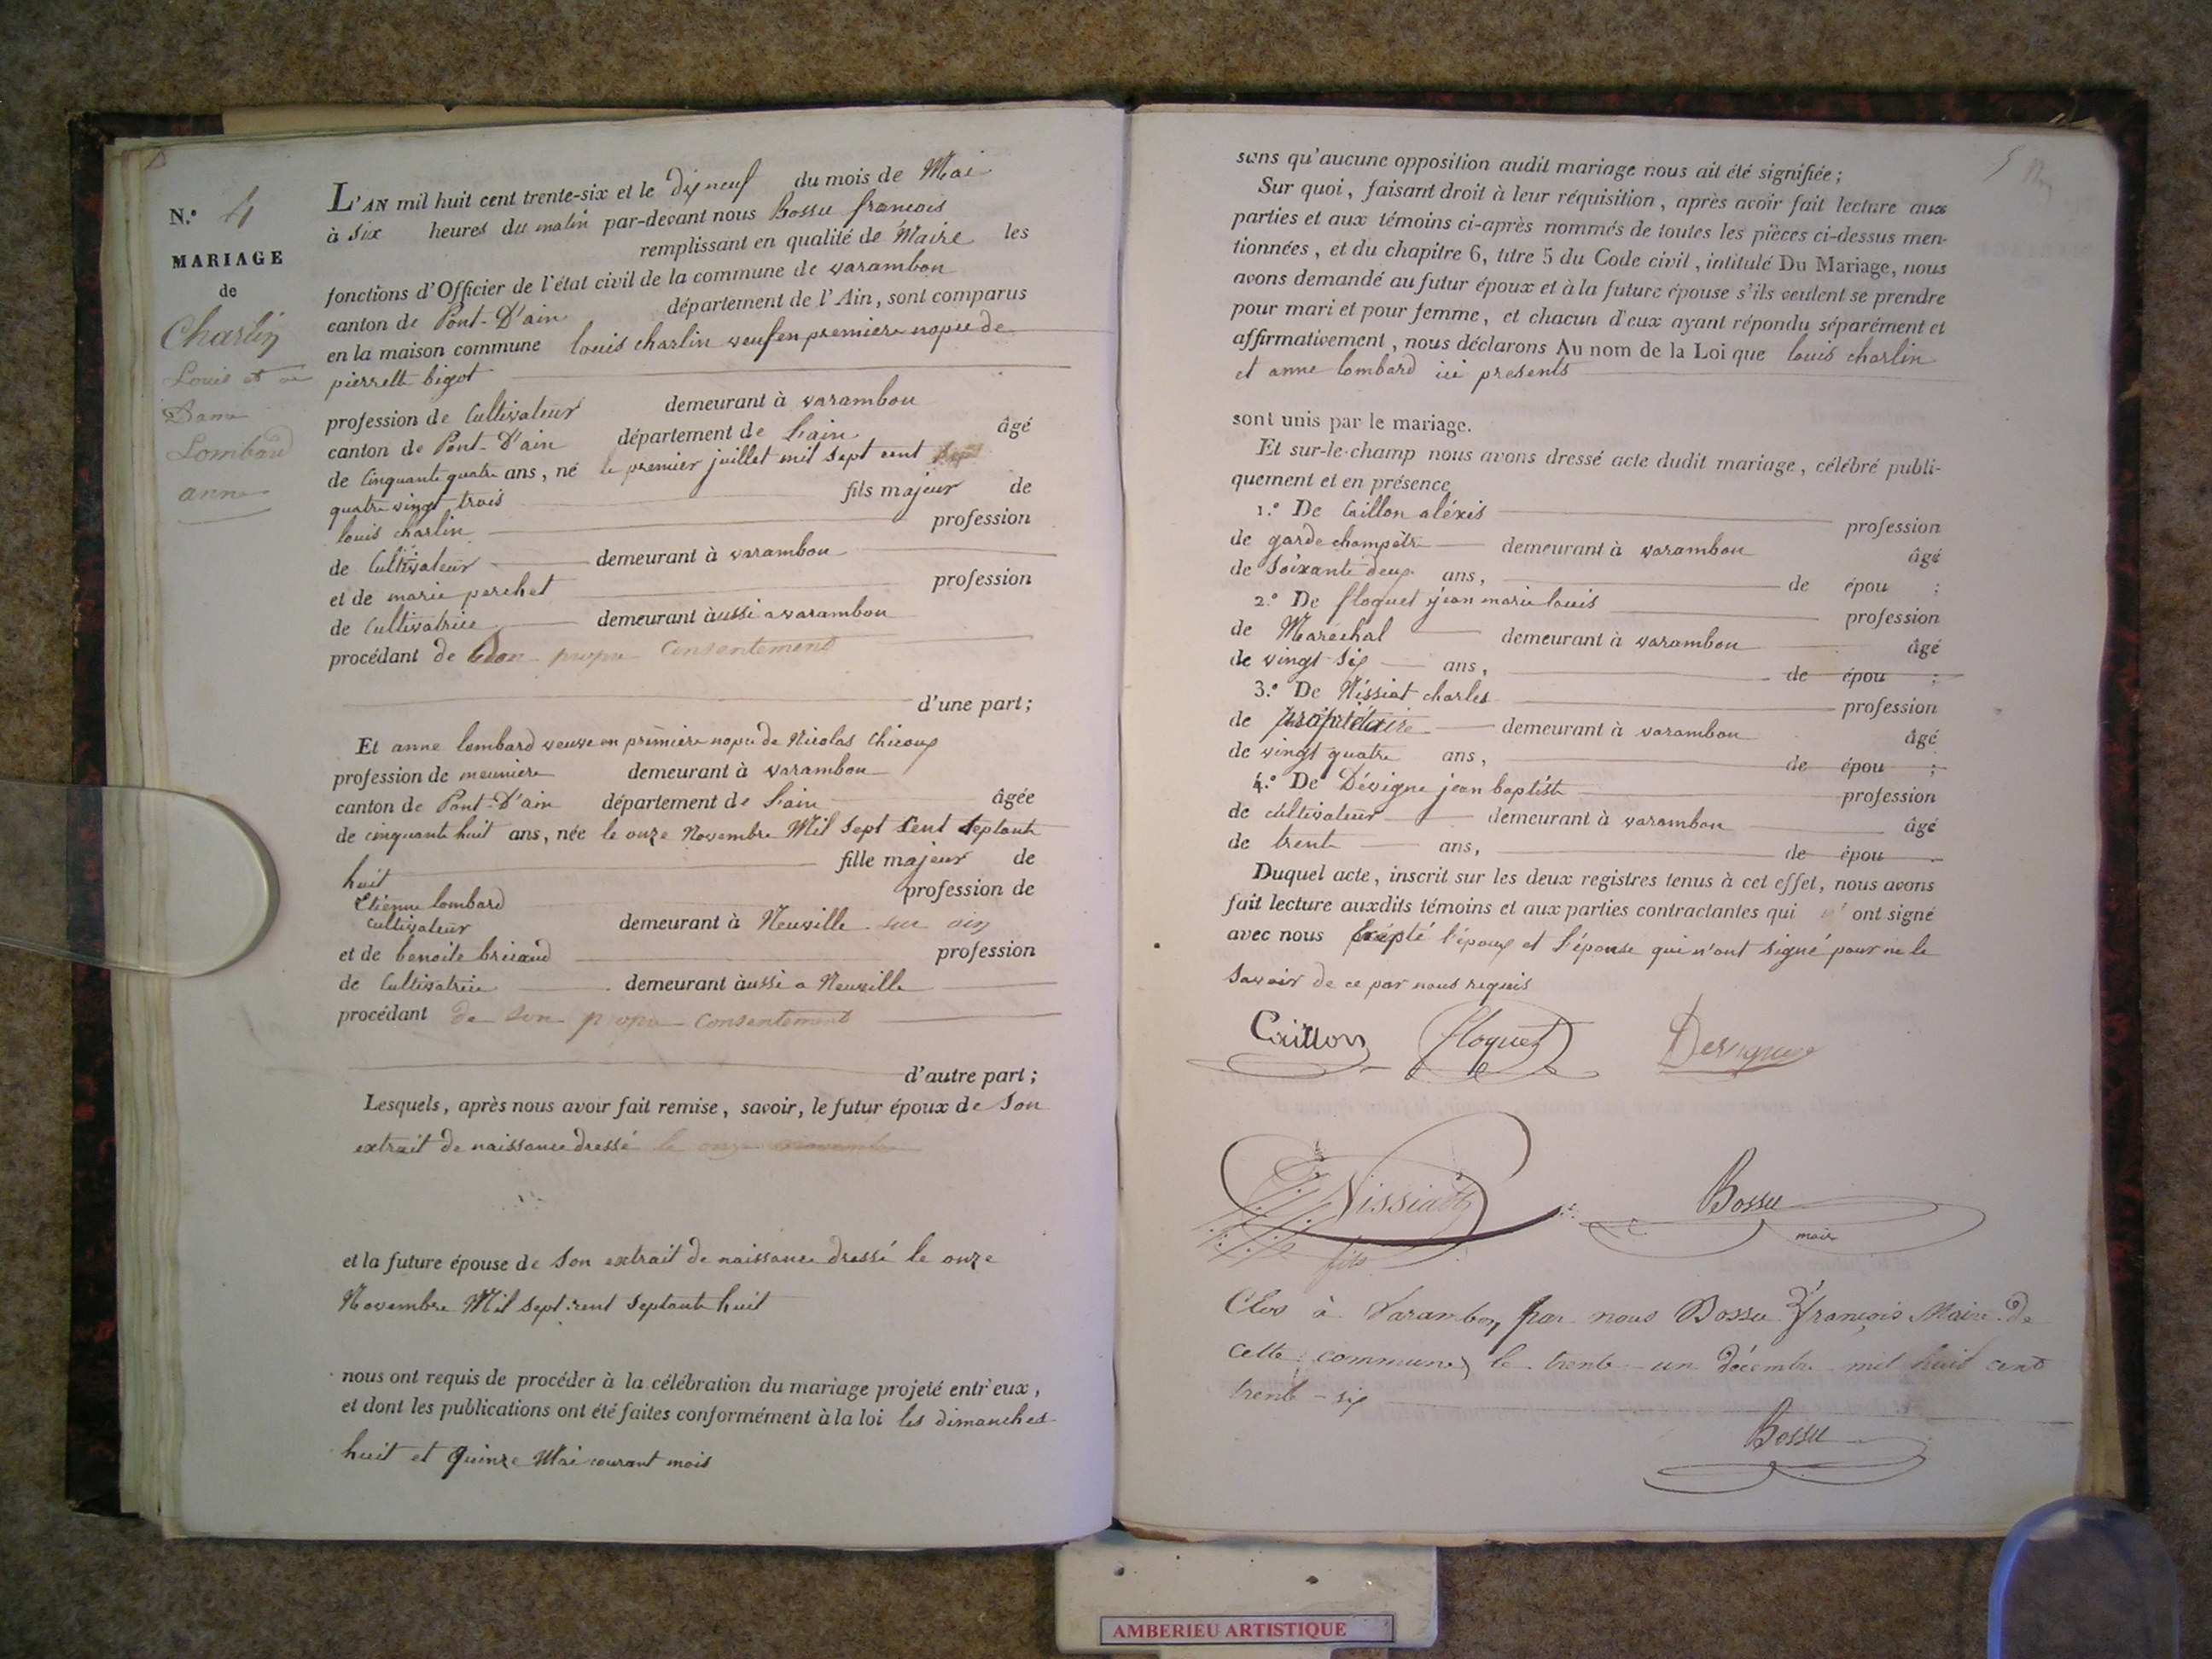 N.° 4
MARIAGE
de
Charlin
Louis et
Dame
Lombard
anne
L'AN mil huit cent trente-six et le dix neuf du mois de Mai
à six heures du matin par-devant nous Bossu francois
remplissant en qualité de Maire les
fonctions d'Officier de l'état civil de la commune de varambon
canton de Pont-D'ain département de l'Ain, sont comparus
en la maison commune louis charlin veuf en premiere nopce de
pierrette bigot
profession de Cultivateur demeurant à varambon
canton de Pont-D'ain département de Lain âgé
de Cinquante quatre ans, né le premier juillet mil sept cent
quatre vingt trois fils majeur de
louis charlin profession
de Cultivateur demeurant à varambon
et de marie perchet profession
de Cultivatrice demeurant àussi a varambon
procédant de Son propre Consentement
d'une part;
Et anne lombard veuve en premiere nopce de Nicolas Chicoux
profession de meuniere demeurant à varambon
canton de Pont-D'ain département de Lain âgée
de cinquante huit ans, née le onze Novembre Mil Sept Cent Septante
huit fille majeur de
Etienne lombard profession de
Cultivateur demeurant à Neuville sur ain
et de benoite briand profession
de Cultivatrice demeurant àussi a Neuville
procédant de Son propre Consentement
d'autre part;
Lesquels, après nous avoir fait remise, savoir, le futur époux de Son
extrait de naissance dressé le onze novembre
et la future épouse de Son extrait de naissance dressé le onze
Novembre Mil Sept cent Septante huit
nous ont requis de procéder à la célébration du mariage projeté entr'eux,
et dont les publications ont été faites conformément à la loi les dimanches
huit et quinze Mai courant mois
sans qu'aucune opposition audit mariage nous ait été signifiée;
Sur quoi, faisant droit à leur réquisition, après avoir fait lecture aux
parties et aux témoins ci-après nommés de toutes les pièces ci-dessus men-
tionnées, et du chapitre 6, titre 5 du Code civil, intitulé Du Mariage, nous
avons demandé au futur époux et à la future épouse s'ils veulent se prendre
pour mari et pour femme, et chacun d'eux ayant répondu séparément et
affirmativement, nous déclarons Au nom de la Loi que louis charlin
et anne lombard ici presents
sont unis par le mariage.
Et sur-le-champ nous avons dressé acte dudit mariage, célébré publi-
quement et en présence
1.° De Caillon aléxis profession
de garde champêtre demeurant à varambon âgé
de Soixante deux ans, de épou ;
2.° De floquet jean marie louis profession
de Maréchal demeurant à varambon âgé
de vingt-six ans, de épou ;
3.° De Nissiat charles profession
de propriétaire demeurant à varambon âgé
de vingt quatre ans, de épou ;
4.° De Dévigne jean baptiste profession
de cultivateur demeurant à varambon âgé
de trente ans, de épou
Duquel acte, inscrit sur les deux registres tenus à cet effet, nous avons
fait lecture auxdits témoins et aux parties contractantes qui ont signé
avec nous Exépté l'époux et L'épouse qui n'ont signé pour ne le
Savoir de ce par nous requis
Caillon floquet Devigne
Nissiat Bossu
fils maire
Clos à Varambon, par nous Bossu François Maire de
cette commune, le trente-un décembre mil huit cent
trente-six
Bossu
AMBERIEU ARTISTIQUE